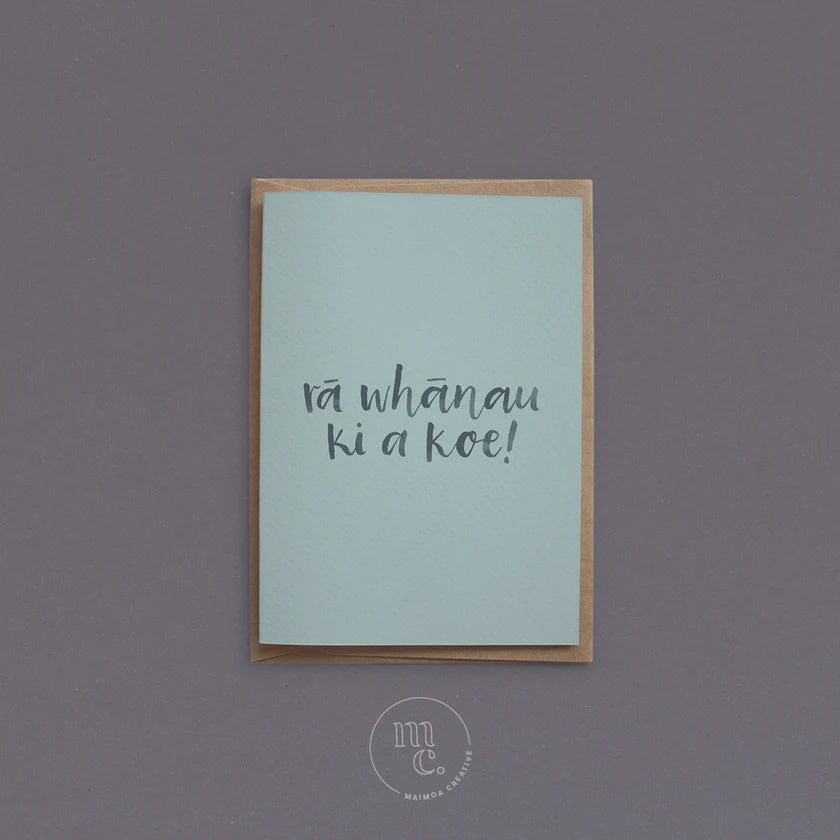 rā whānau
ki a koe!
mc.
MAIMOA CREATIVE